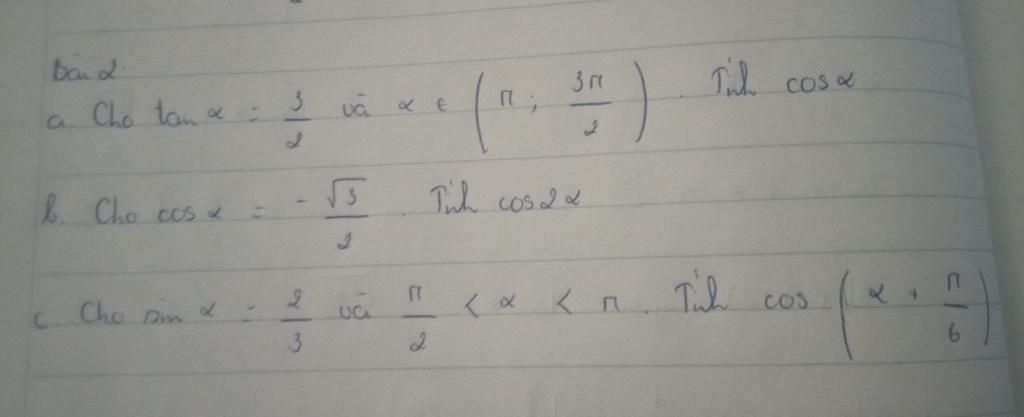 Bài 2
a. Cho tan α = 3/2 và α ∈ (π; 3π/2). Tính cos α
b. Cho cos α = -√3/2. Tính cos 2α
c. Cho sin α = 2/3 và π/2 < α < π. Tính cos (α + π/6)